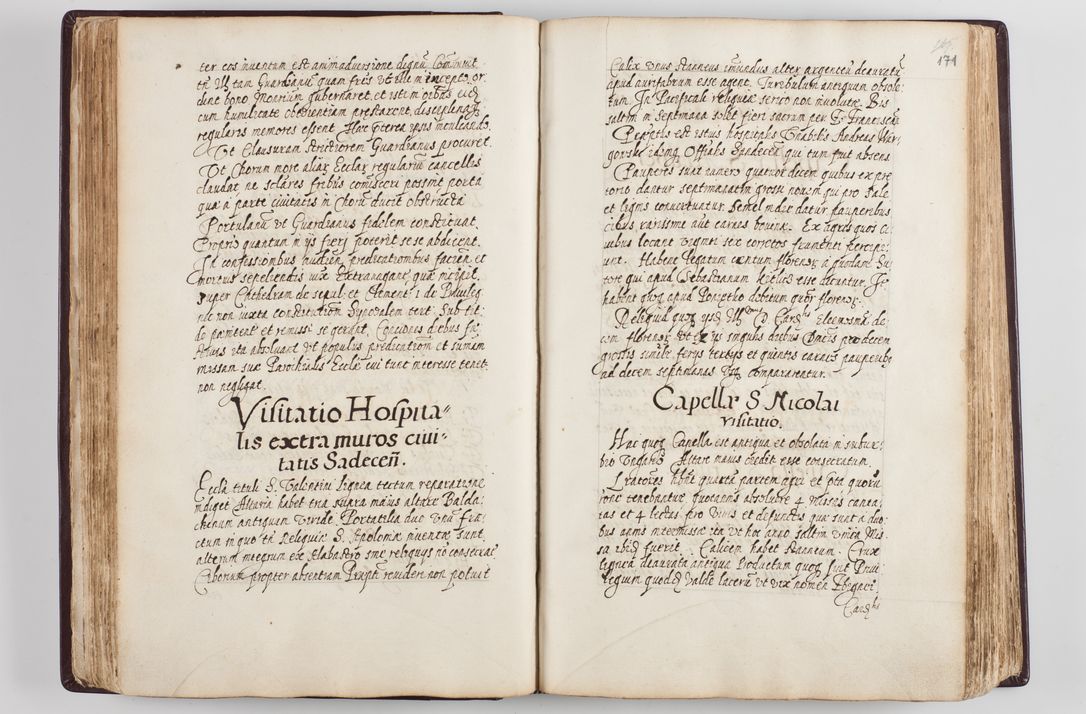 ter eos inventum est animadversione dignū Commisit
tn̄ Ill tam Guardianū quam frīs vt ille in incepto or
dine bono Monriūm gubernaret, et istum orībus eidē
cum humilitate obedientiam prestarent, disciplinæqȝ
regularis memores essent. Hæc pterea ipsis inculcando.
Vt Clausuram strictiorem Guardianus procuret.
Vt Chorum more aliar̄ Ecclār̄ regulariū cancellis
claudat, ne sclāres frībus comisceri possint porta
qua a parte civitatis in Chorū ducit obstructa
Portulanū vt Guardianus fidelem constituat.
Proprio quantum in ijs fierj poterit sese abdicent.
In confessionibus audien, prædicationibus facien, et
mortuis sepeliendis iux Extravagantē quæ incipit.
super Chthedram de sepul: et Clement: 1 de Privileg
nec non iuxta constitutiom Synodalem tert: sub tit
de pœnitent et remissi se gerant, Conciones diebus fe
stivis ita absolvant vt populus prædicationi et sumam
missam suæ Parochialis Ecclīæ cui tunc interesse tenet
non negligat.
Visitatio Hospita=
lis extra muros civi=
tatis Sadeceñ.
Ecclīa tituli S. Valentini lignea tectum reparatione
indiget Altaria habet tria supra maius altare Balda:
chinum antiquum viride. Portatilia duo vnū fra:
ctum in quo tn̄ Reliquiæ S. Apoloniæ inventæ sunt,
alterum integrum ex Alabastro sine reliquijs nō consecrat
Ciborium propter absentiam Præpti revideri non potuit
171
Calix vnus stanneus imundus alter argenteus deauratꝰ
apud aurifabrum esse agent. Turibulum antiquum obsole
tum. In Pacificali reliquiæ serico non involutæ. Bis
saltim in septimana solet fieri sacrum per F. Franciscan
Præptus est istius hospitalis Nobilis Andreas War
gowski idemqȝ Offialis Sandecen qui tum fuit absens
Pauperes sunt numero quatuordecem quibus ex præ
torio dantur septimanatim grossi novem qui pro Sale
et lignis convertuntur. Semel in die datur pauperibus
cibus rarissime aut carnes bovinæ. Ex agris quos ci
vibus locant viginti sex coretos frumenti percipi
unt. Habent legatum centum florenor̄ a quodam Su
tore qui apud Sebastianum Relictis esse dicuntur. Ite
habent quoqȝ apud Ponzetho debitum quor̄ florenor̄
Reliquid quoqȝ ipse Illmus D Cardlis Eleemosinā de
cem florenos vt ex ijs singulis diebus Dnicis pro decem
grossis similr̄ ferijs tertijs et quintis carnes pauperibꝰ
ad decem septimanas vsqȝ compararentur.
Capellæ S Nicolai
visitatio.
Hæc quoqȝ Capella est antiqua et obsoleta in subur:
bio Vngarico Altare maius credit esse consecratum.
Pratores habent quartā partem agri et hota quorū
rōne tenebantur quotannis absolvere 4 Missas canta
tas et 4 lectas pro vivis et defunctis quæ sunt a duo
bus annis intermissæ ita vt hoc anno saltim vnica Mis
sa ibidē fuerit. Calicem habet stanneum. Crux
lignea deaurata antiqua. Productum quoqȝ fuit Privi
legium quoddā valde lacerū vt vix nomen Sbignei
Cardlis